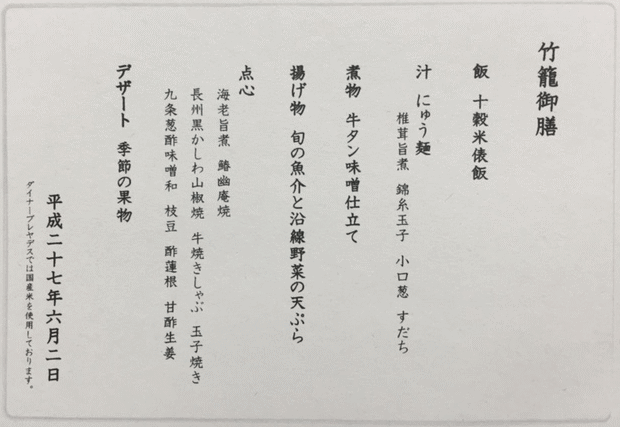 竹籠御膳
飯 十穀米俵飯
汁 にゅう麺
椎茸旨煮 錦糸玉子 小口葱 すだち
煮物 牛タン味噌仕立て
揚げ物 旬の魚介と沿線野菜の天ぷら
点心
海老旨煮 鰆幽庵焼
長州黒かしわ山椒焼 牛焼きしゃぶ 玉子焼き
九条葱酢味噌和 枝豆 酢蓮根 甘酢生姜
デザート 季節の果物
平成二十七年六月二日
ダイナープレヤデスでは国産米を使用しております。